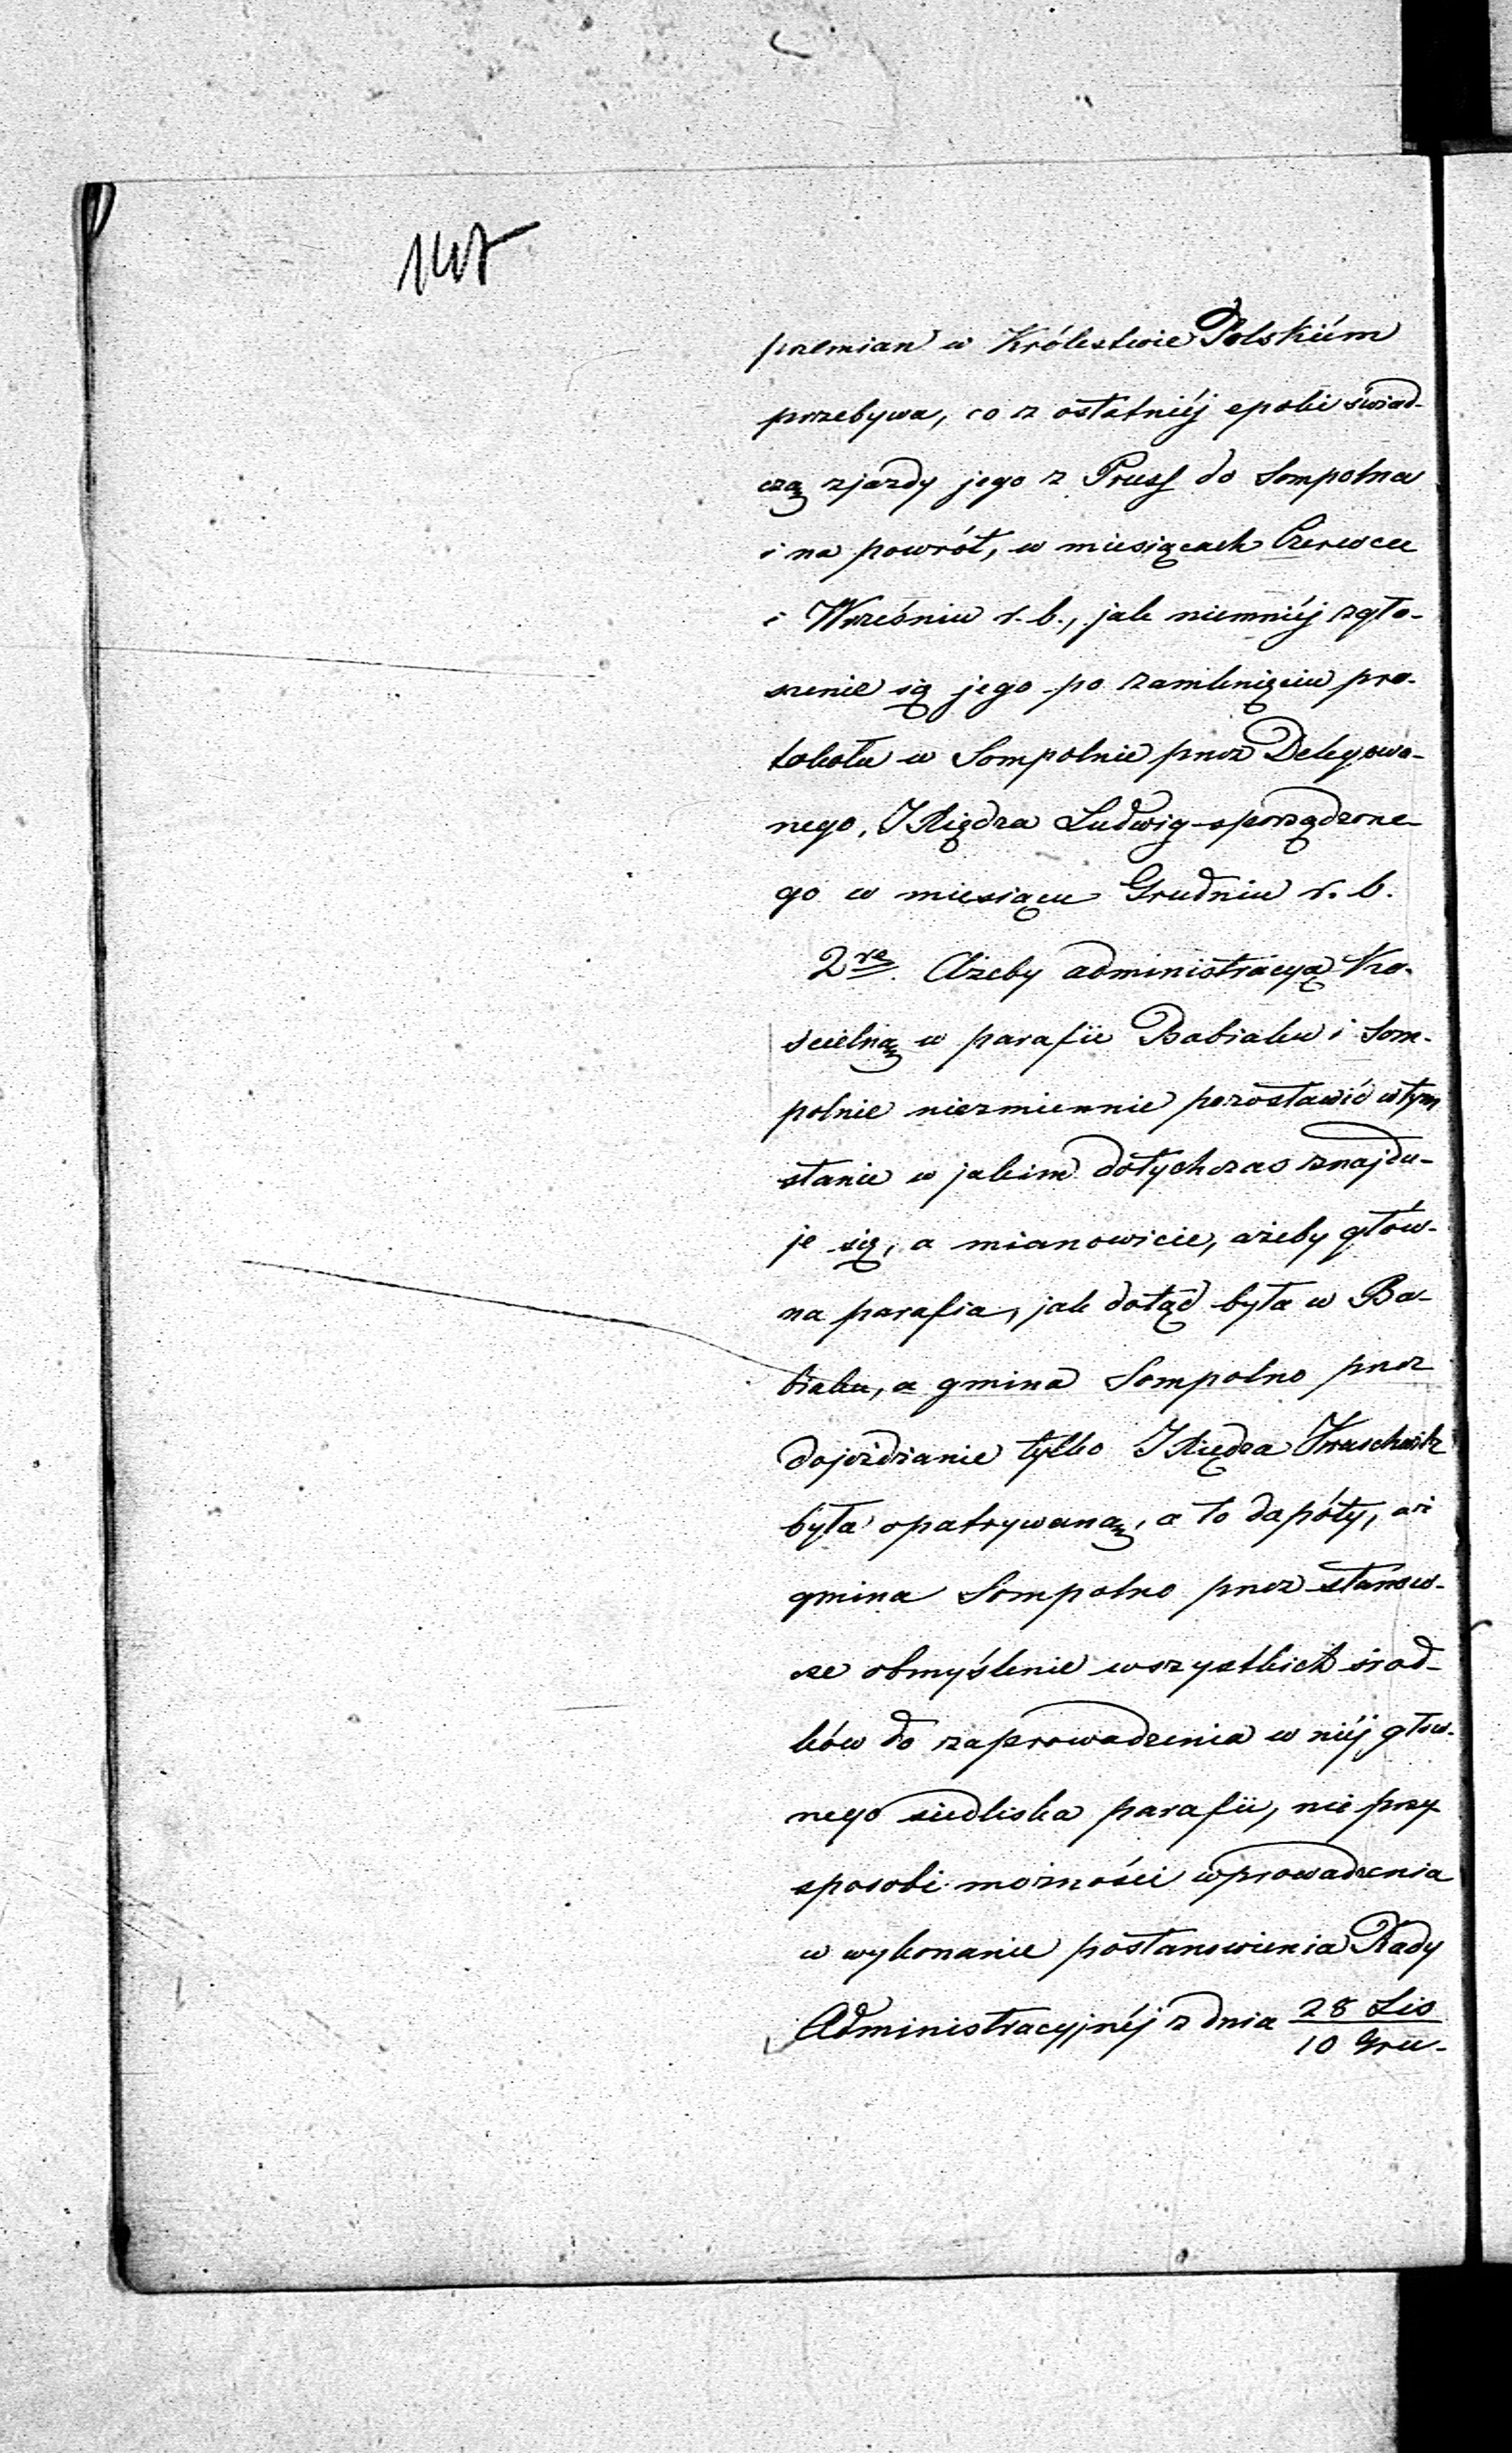 przemian w Królestwie Polskiém
przebywa, co z ostatniéj epoki świad-
czą zjazdy jego z Pruss do Sompolna
i na powrót, w miesiącach Czerwcu
i Wrześniu r. b., jak niemniéj zgło-
szenie się jego po zamknięciu pro-
tokołu w Sompolnie przez Delegowa-
nego, X Księdza Ludwig sporządzone-
go w miesiącu Grudniu r. b.
2re. Ażeby administracyą Ko-
ścielną w parafii Babiaku i Som-
polnie niezmiennie pozostawić w tym
stanie w jakim dotychczas znajdu-
je się, a mianowicie, ażeby głów-
na parafia, jak dotąd była w Ba-
biaku, a gmina Sompolno przez
dojeżdżanie tylko X Księdza Kruschwitz
była opatrywaną, a to dapóty, aż
gmina Sompolno przez stanow-
cze obmyślenie wszystkich środ-
ków do zaprowadzenia w niéj głów-
nego siedliska parafii, nie przy
sposobi możności wprowadzenia
w wykonanie postanowienia Rady
Administracyjnéj z dnia 28 Lis / 10 Gru-